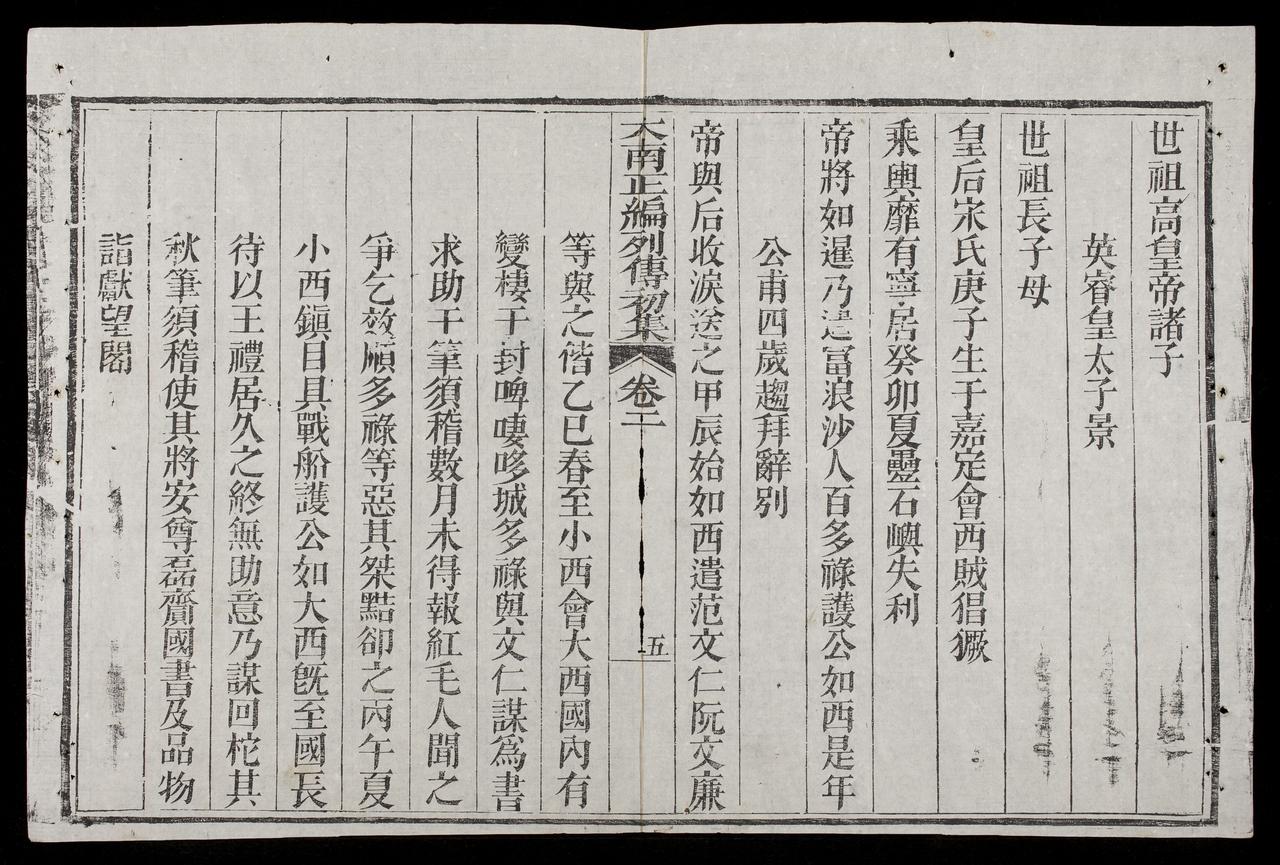 世祖高皇帝諸子
英睿皇太子景
世祖長子母
皇后宋氏庚子生于嘉定會西賊猖獗
乘輿靡有寧居癸卯夏疊石嶼失利
帝將如暹乃遣富浪沙人百多祿護公如西是年
公甫四歲趨拜辭別
帝與后收淚送之甲辰始如西遣范文仁阮文廉
大南正編列傳初集 卷二 五
等與之偕乙巳春至小西會大西國內有
變棲于封啤嘍哆城多祿與文仁謀爲書
求助于筆須稽數月未得報紅毛人聞之
爭乞效順多祿等惡其桀黠卻之丙午夏
小西鎭目具戰船護公如大西旣至國長
待以王禮居久之終無助意乃謀回柁其
秋筆須稽使其將安尊磊齎國書及品物
詣獻望閣